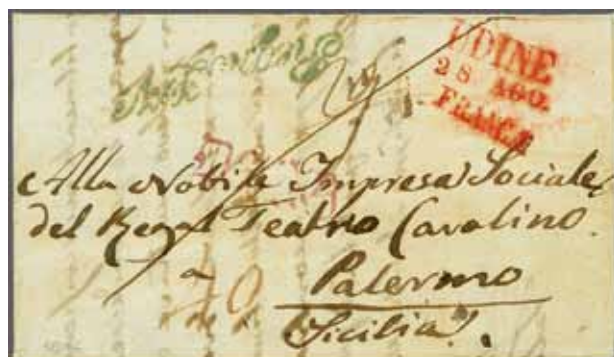 UDINE
28 AGO.
FRANCA
Alla Nobile Impresa Sociale
del Regal Teatro Carolino.
a
40
Palermo
Sicilia.